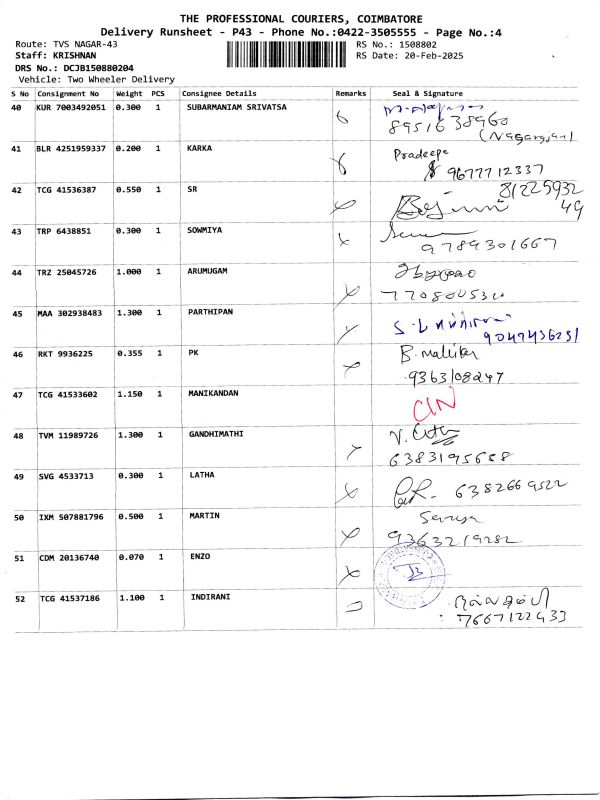 THE PROFESSIONAL COURIERS, COIMBATORE
Delivery Runsheet - P43 - Phone No.:0422-3505555 - Page No.:4
Route: TVS NAGAR-43 RS No.: 1508802
Staff: KRISHNAN RS Date: 20-Feb-2025
DRS No.: DCJB150880204
Vehicle: Two Wheeler Delivery
S No Consignment No Weight PCS Consignee Details Remarks Seal & Signature
40 KUR 7003492051 0.300 1 SUBARMANIAM SRIVATSA
8951638960
(Nagarajan)
41 BLR 4251959337 0.200 1 KARKA Pradeepa
9677712337
42 TCG 41536387 0.550 1 SR 81225932
49
43 TRP 6438851 0.300 1 SOWMIYA
9789301667
44 TRZ 25045726 1.000 1 ARUMUGAM
45 MAA 302938483 1.300 1 PARTHIPAN
9047436231
46 RKT 9936225 0.355 1 PK B. mallika
9363108247
47 TCG 41533602 1.150 1 MANIKANDAN
CIN
48 TVM 11989726 1.300 1 GANDHIMATHI
6383195688
49 SVG 4533713 0.300 1 LATHA 6382669522
50 IXM 507881796 0.500 1 MARTIN
9363219282
51 CDM 20136740 0.070 1 ENZO
52 TCG 41537186 1.100 1 INDIRANI
7667122433